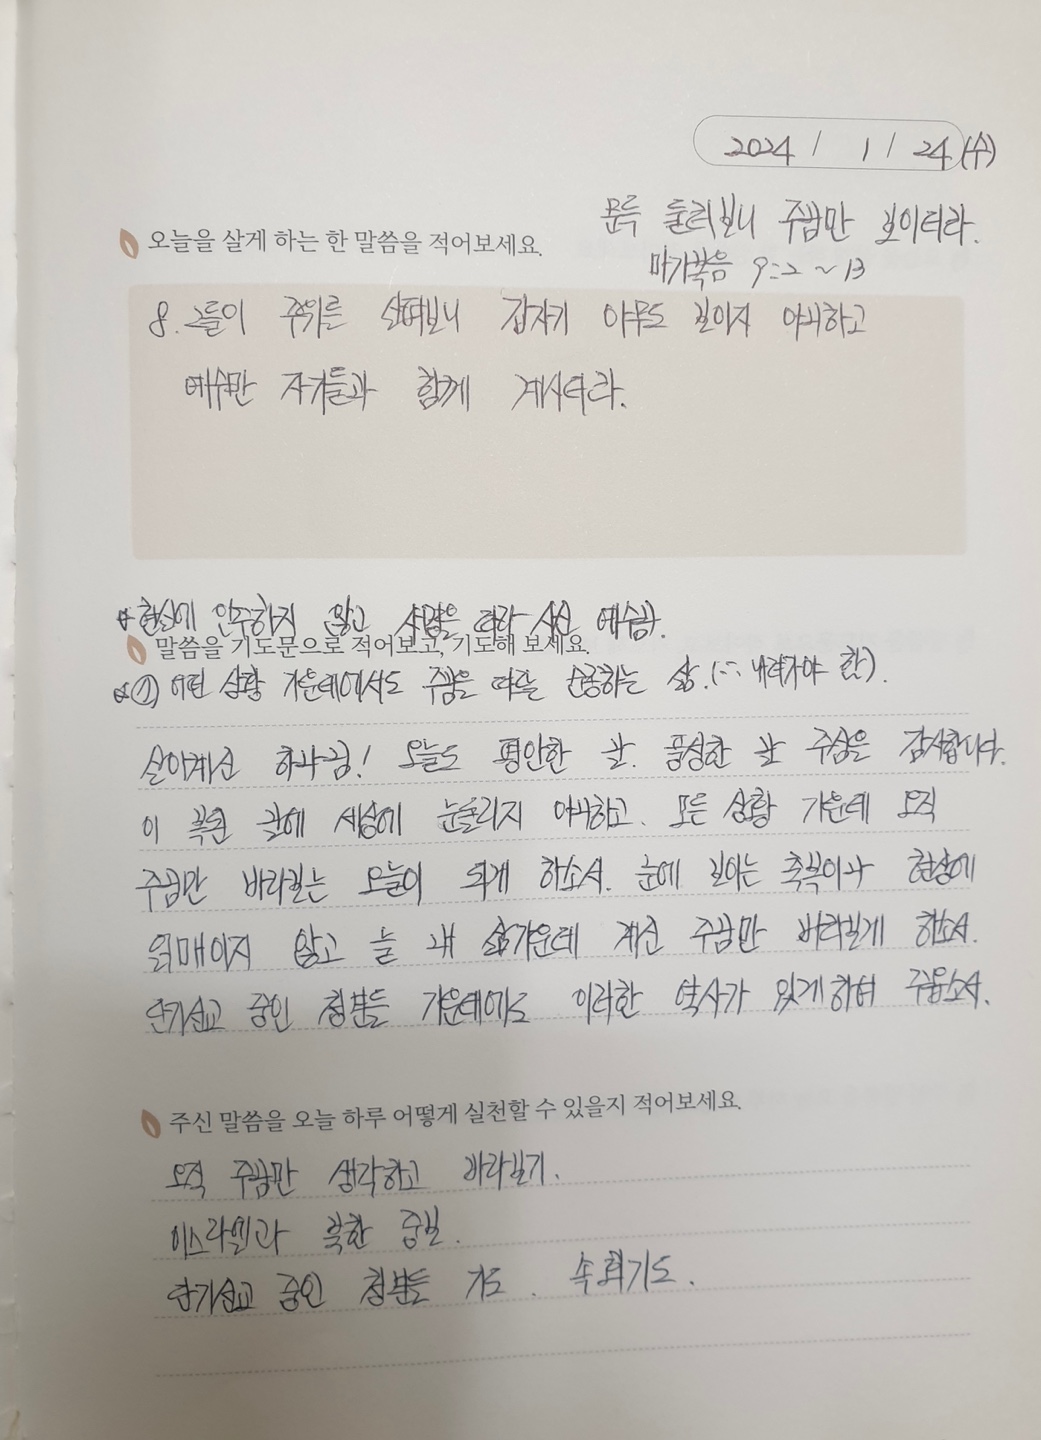 2024 / 1 / 24 (수)
문득 둘러보니 주님만 보이더라.
오늘을 살게 하는 한 말씀을 적어보세요.
마가복음 9:2 ~ 13
8. 그들이 주위를 살펴보니 갑자기 아무도 보이지 아니하고
예수만 자기들과 함께 계시더라.
현실에 안주하지 않고 사명을 따라 사신 예수님.
말씀을 기도문으로 적어보고, 기도해 보세요.
어떤 상황 가운데에서도 주님을 따라 순종하는 삶. (∵ 내려가야 함).
살아계신 하나님! 오늘도 평안한 날. 풍성한 날 주심은 감사합니다.
이 복된 날에 세상에 눈돌리지 아니하고. 모든 상황 가운데 오직
주님만 바라보는 오늘이 되게 하소서. 눈에 보이는 축복이나 현상에
얽매이지 않고 늘 내 삶가운데 계신 주님만 바라보게 하소서.
단기선교 중인 청년들 가운데에도 이러한 역사가 있게하여 주옵소서.
주신 말씀을 오늘 하루 어떻게 실천할 수 있을지 적어보세요.
오직 주님만 생각하고 바라보기.
이스라엘과 북한 중보.
단기선교 중인 청년들 기도. 속회기도.